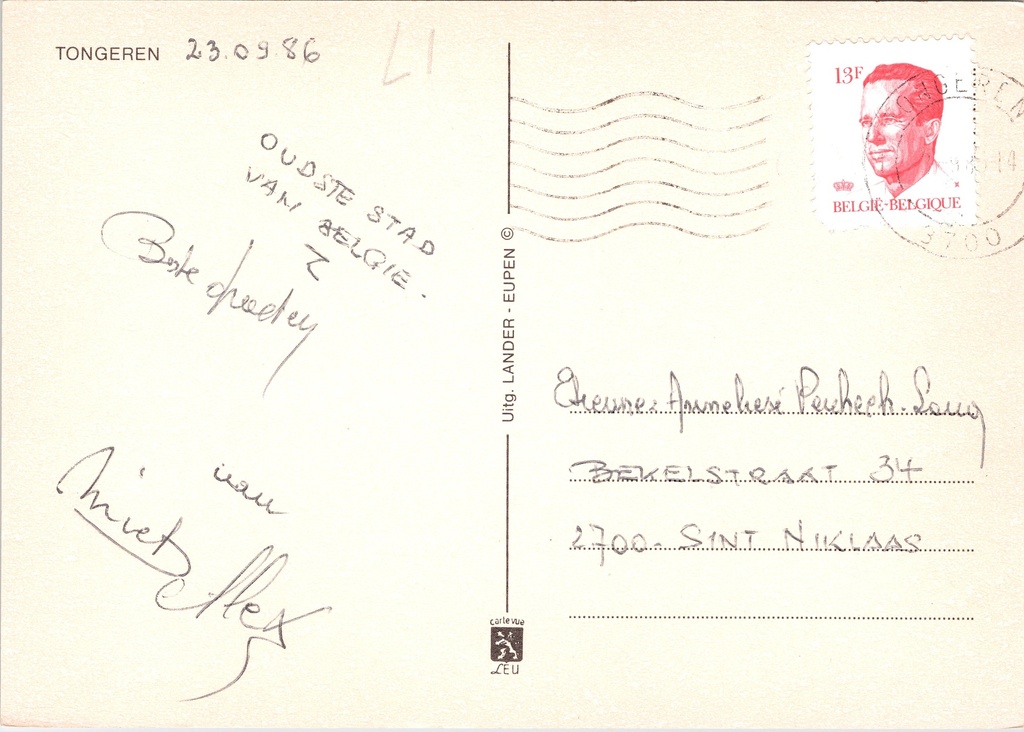 TONGEREN 23.09.86
L1
OUDSTE STAD
VAN BELGIE.
Beste groeten
van
Miet
13F
BELGIË-BELGIQUE
TONGEREN
14
3700
Uitg. LANDER - EUPEN ©
Etienne
BEKELSTRAAT 34
2700 - SINT NIKLAAS
carte vue
LEU